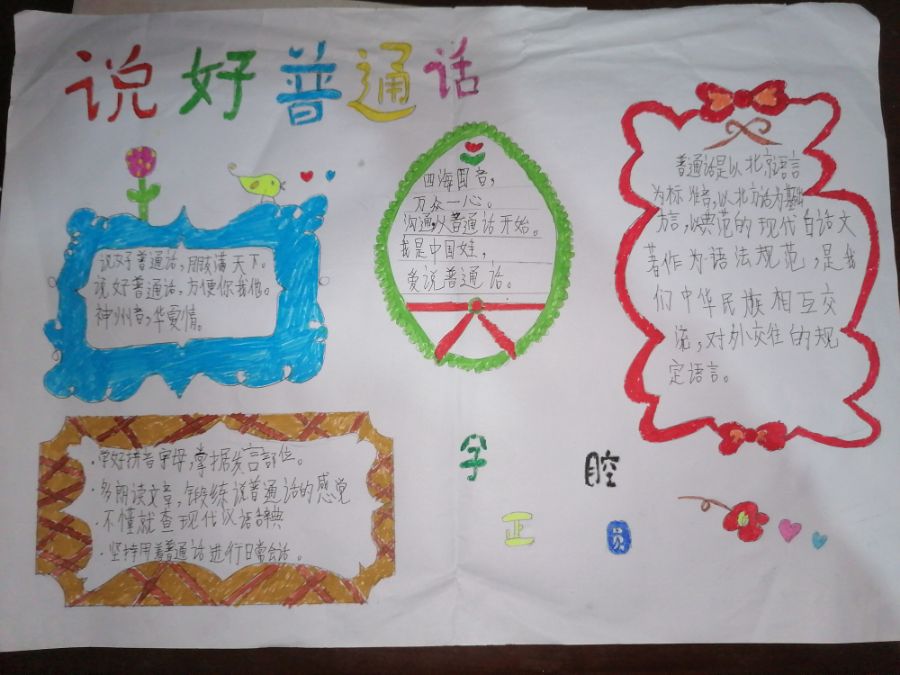 说好普通话
说好普通话,朋友满天下。
说好普通话,方便你我他。
神州音,华夏情。
四海国音,
万众一心。
沟通从普通话开始。
我是中国娃,
爱说普通话。
普通话是以北京语言
为标准音,以北方话为基础
方言,以典范的现代白话文
著作为语法规范,是我
们中华民族相互交
流,对外交往的规
定语言。
·学好拼音字母,掌握发言部位。
·多朗读文章,锻练说普通话的感觉
·不懂就查现代汉语辞典
·坚持用普通话进行日常会话。
字
正
腔
员